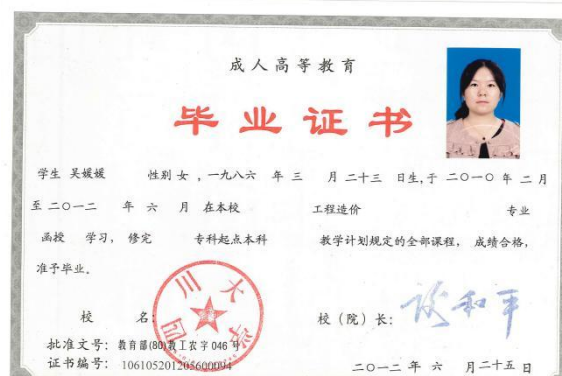 成人高等教育
毕业证书
学生 吴媛媛 性别 女 , 一九八六 年 三 月 二十三 日生,于 二〇一〇 年 二 月
至 二〇一二 年 六 月 在本校 工程造价 专业
函授 学习, 修完 专科起点本科 教学计划规定的全部课程, 成绩合格,
准予毕业。
四川大学
校 名: 校(院)长: 谈和平
批准文号: 教育部(80)教工农字 046 号
证书编号: 106105201205600094 二〇一二 年 六 月二十五 日